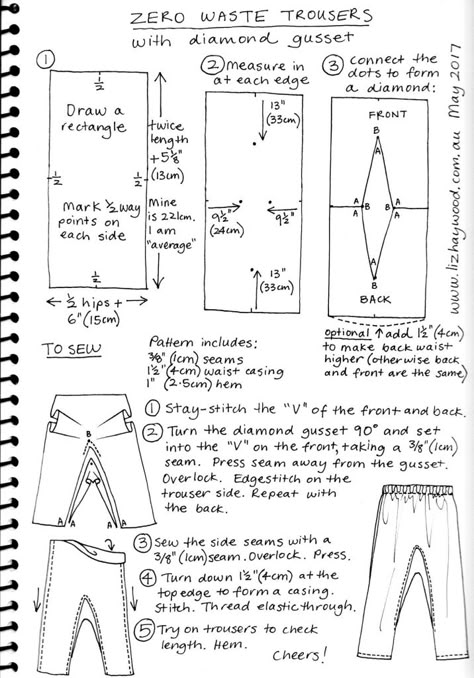 ZERO WASTE TROUSERS
with diamond gusset
①
1/2
Draw a
rectangle
1/2
1/2
Mark 1/2 way
points on
each side
1/2
twice
length
+5 1/8"
(13cm)
Mine
is 221cm.
I am
"average"
1/2 hips +
6" (15cm)
② measure in
at each edge
13"
(33cm)
9 1/2"
(24cm)
9 1/2"
13"
(33cm)
③ connect the
dots to form
a diamond:
FRONT
B
A
A B B A
A A
A
B
BACK
optional ↑ add 1 1/2" (4cm)
to make back waist
higher (otherwise back
and front are the same)
www.lizhaywood.com.au May 2017
TO SEW
Pattern includes:
3/8" (1cm) seams
1 1/2" (4cm) waist casing
1" (2.5cm) hem
① Stay-stitch the "V" of the front and back.
② Turn the diamond gusset 90° and set
into the "V" on the front, taking a 3/8" (1cm)
seam. Press seam away from the gusset.
Overlock. Edgestitch on the
trouser side. Repeat with
the back.
B
A A A A
③ Sew the side seams with a
3/8" (1cm) seam. Overlock. Press.
④ Turn down 1 1/2" (4cm) at the
top edge to form a casing.
Stitch. Thread elastic through.
⑤ Try on trousers to check
length. Hem.
Cheers!